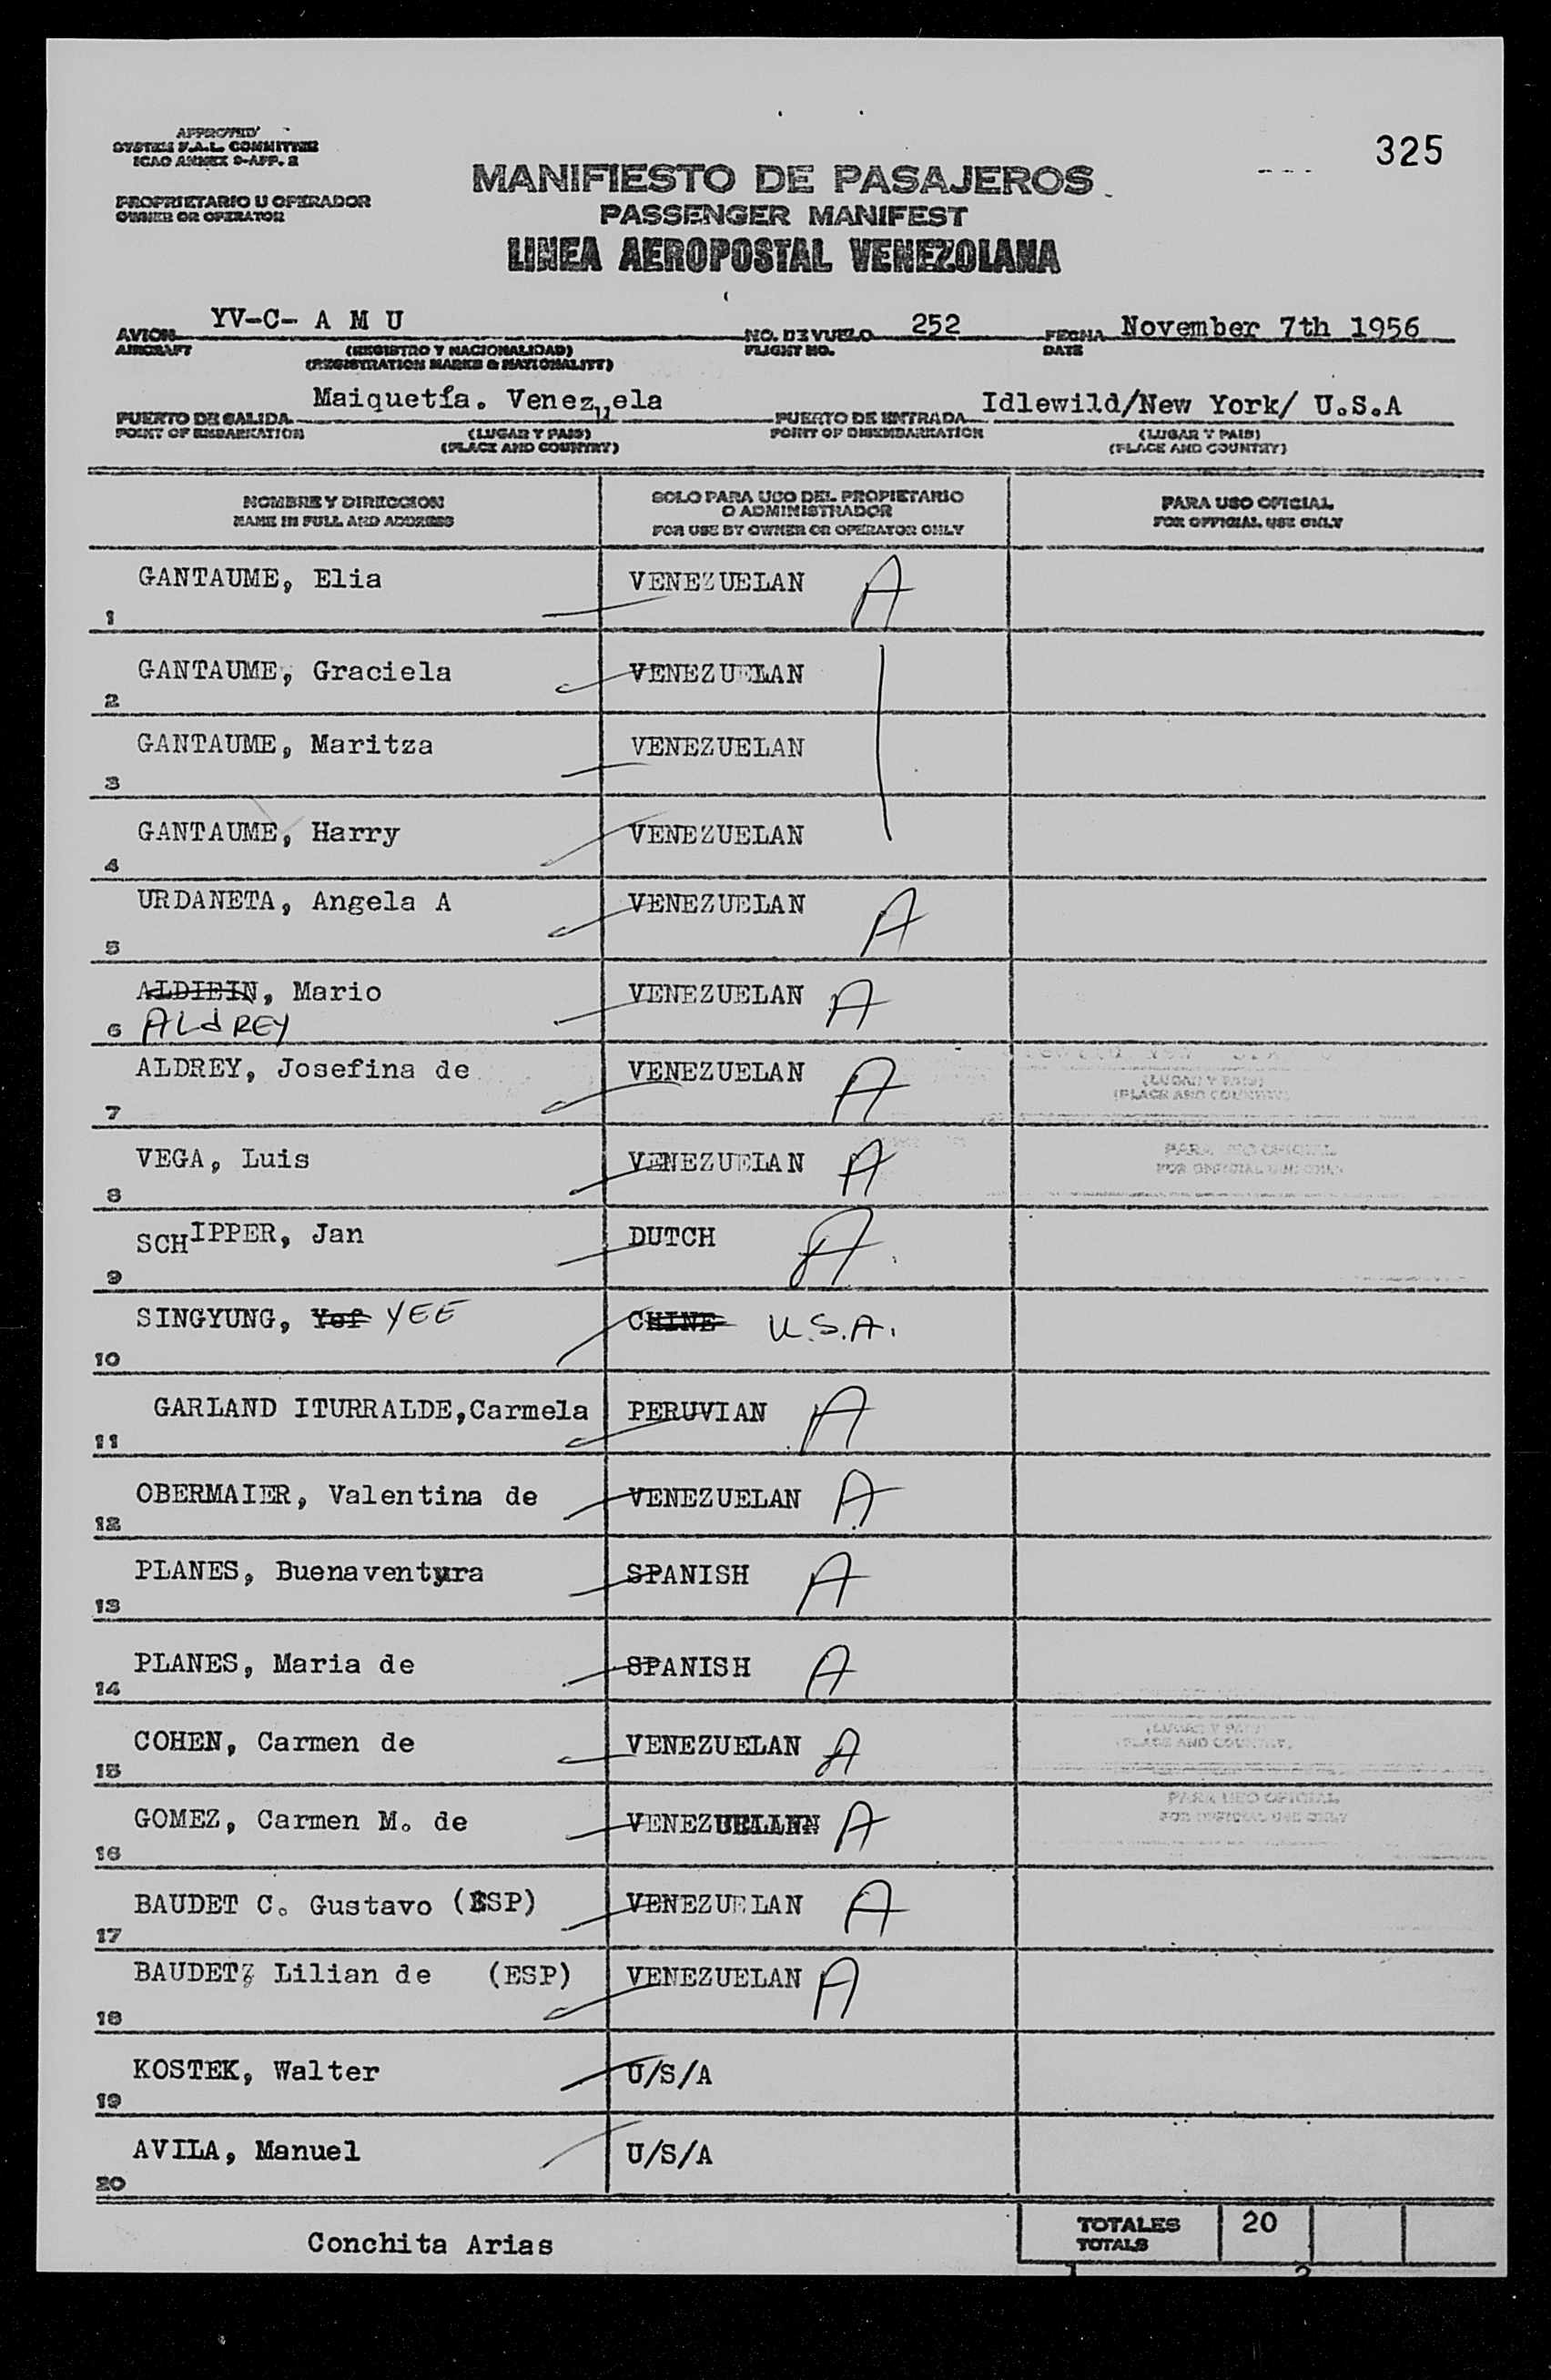 APPROVED
SYSTEM F.A.L. COMMITTEE
ICAO ANNEX 9-APP. 2
325
MANIFIESTO DE PASAJEROS
PROPRIETARIO U OPERADOR
OWNER OR OPERATOR
PASSENGER MANIFEST
LINEA AEROPOSTAL VENEZOLANA
AVION YV-C- A M U NO. DE VUELO 252 FECHA November 7th 1956
AIRCRAFT (REGISTRO Y NACIONALIDAD) FLIGHT NO. DATE
(REGISTRATION MARKS & NATIONALITY)
PUERTO DE SALIDA Maiquetía. Venezuela PUERTO DE ENTRADA Idlewild/New York/ U.S.A
POINT OF EMBARKATION (LUGAR Y PAIS) POINT OF DISEMBARKATION (LUGAR Y PAIS)
(PLACE AND COUNTRY) (PLACE AND COUNTRY)
NOMBRE Y DIRECCION
NAME IN FULL AND ADDRESS
SOLO PARA USO DEL PROPIETARIO
O ADMINISTRADOR
FOR USE BY OWNER OR OPERATOR ONLY
PARA USO OFICIAL
FOR OFFICIAL USE ONLY
1 GANTAUME, Elia VENEZUELAN A
2 GANTAUME, Graciela VENEZUELAN
3 GANTAUME, Maritza VENEZUELAN
4 GANTAUME, Harry VENEZUELAN
5 URDANETA, Angela A VENEZUELAN A
ALDIEIN, Mario VENEZUELAN A
6 ALdREY
7 ALDREY, Josefina de VENEZUELAN A
(LUGAR Y PAIS)
(PLACE AND COUNTRY)
8 VEGA, Luis VENEZUELAN A
PARA USO OFICIAL
FOR OFFICIAL USE ONLY
9 SCHIPPER, Jan DUTCH A
10 SINGYUNG, Yof YEE CHINE U.S.A.
11 GARLAND ITURRALDE,Carmela PERUVIAN A
12 OBERMAIER, Valentina de VENEZUELAN A
13 PLANES, Buenaventura SPANISH A
14 PLANES, Maria de SPANISH A
15 COHEN, Carmen de VENEZUELAN A
(LUGAR Y PAIS)
(PLACE AND COUNTRY)
16 GOMEZ, Carmen M. de VENEZUELAN A
PARA USO OFICIAL
FOR OFFICIAL USE ONLY
17 BAUDET C. Gustavo (ESP) VENEZUELAN A
18 BAUDET, Lilian de (ESP) VENEZUELAN A
19 KOSTEK, Walter U/S/A
20 AVILA, Manuel U/S/A
Conchita Arias
TOTALES 20
TOTALS